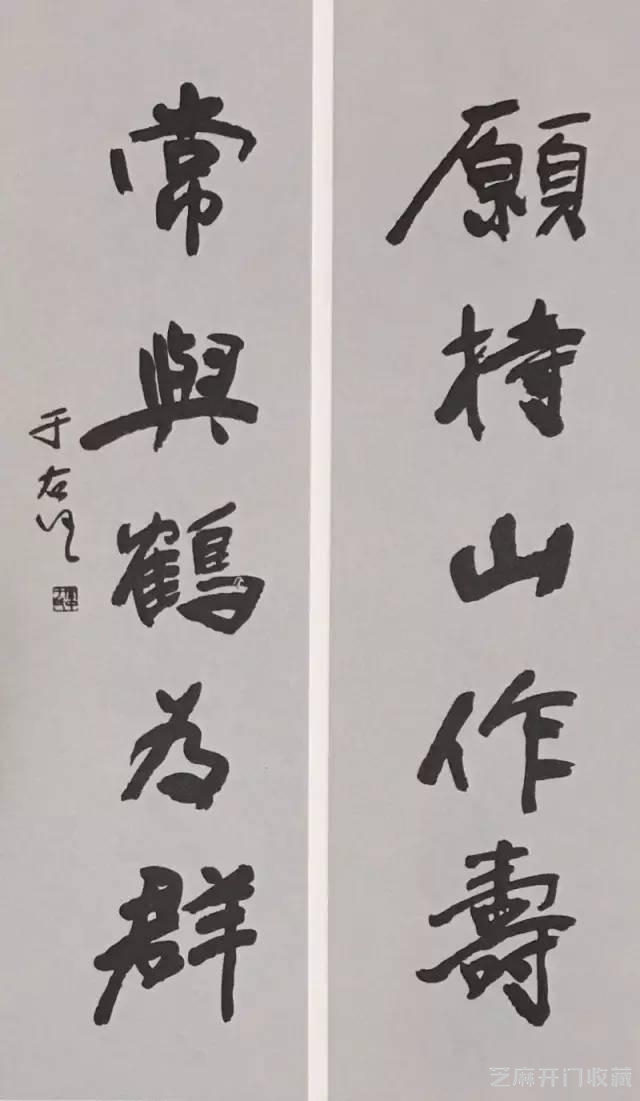 願持山作壽
常與鶴為群
于右任
芝麻开门收藏